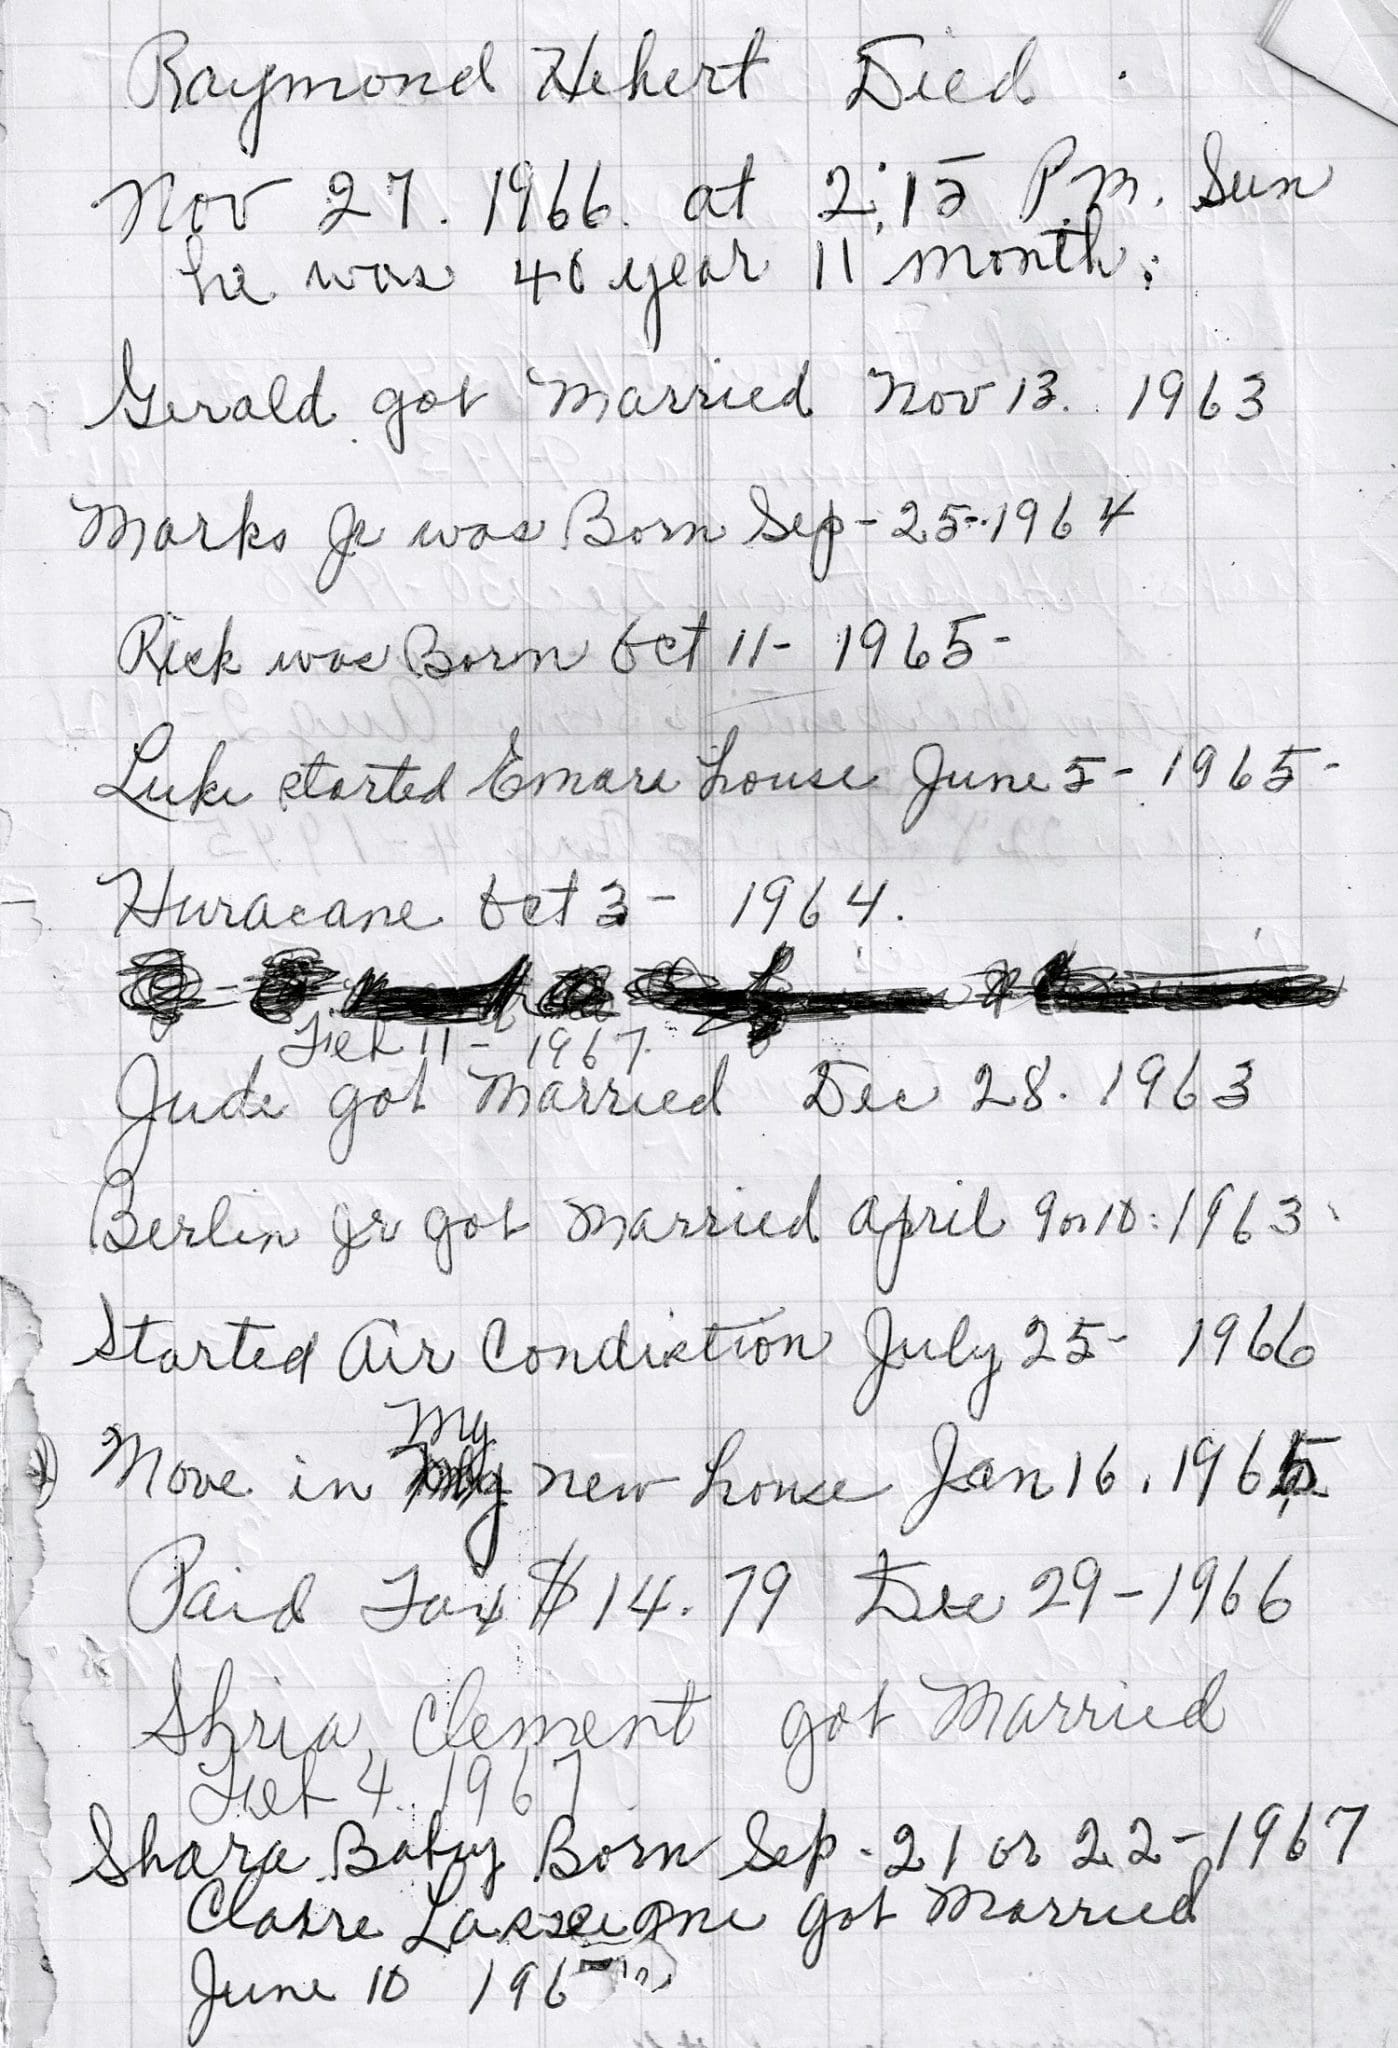 Raymond Hebert Died
Nov 27. 1966. at 2:15 P.M. Sun
he was 40 year 11 month.
Gerald got Married Nov 13. 1963
Marks Jr was Born Sep - 25 - 1964
Rick was Born Oct 11 - 1965 -
Luke started Emare house June 5 - 1965 -
Huracane Oct 3 - 1964.
Feb 11 - 1967.
Jude got Married Dec 28. 1963
Berlin Jr got Married April 9 or 10 : 1963
Started Air Condiction July 25 - 1966
My
Move in new house Jan 16. 1965
Paid Tax $14.79 Dec 29 - 1966
Shria Clement got Married
Feb 4. 1967
Shara Baby Born Sep - 21 or 22 - 1967
Clarre got Married
June 10